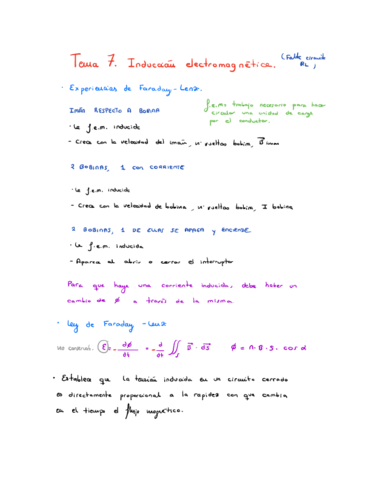 Tema 7. Inducción electromagnética. (Falta circuito RL)
· Experiencias de Faraday-Lenz.
IMÁN RESPECTO A BOBINA
f.e.m: trabajo necesario para hacer
circular una unidad de carga
por el conductor.
· La f.e.m. inducida
- Crece con la velocidad del imán, nº vueltas bobina, B imán
2 BOBINAS, 1 CON CORRIENTE
· La f.e.m. inducida
- Crece con la velocidad de bobina, nº vueltas bobina, I bobina
2 BOBINAS, 1 DE ELLAS SE APAGA Y ENCIENDE.
· La f.e.m. inducida
- Aparece al abrir o cerrar el interruptor
Para que haya una corriente inducida, debe haber un
cambio de Ø a través de la misma.
· Ley de Faraday-Lenz
ε = - dØ/dt = - d/dt ∬s B · ds Ø = n · B · S · cos α
· Establece que la tensión inducida en un circuito cerrado
es directamente proporcional a la rapidez con que cambia
en el tiempo el flujo magnético.